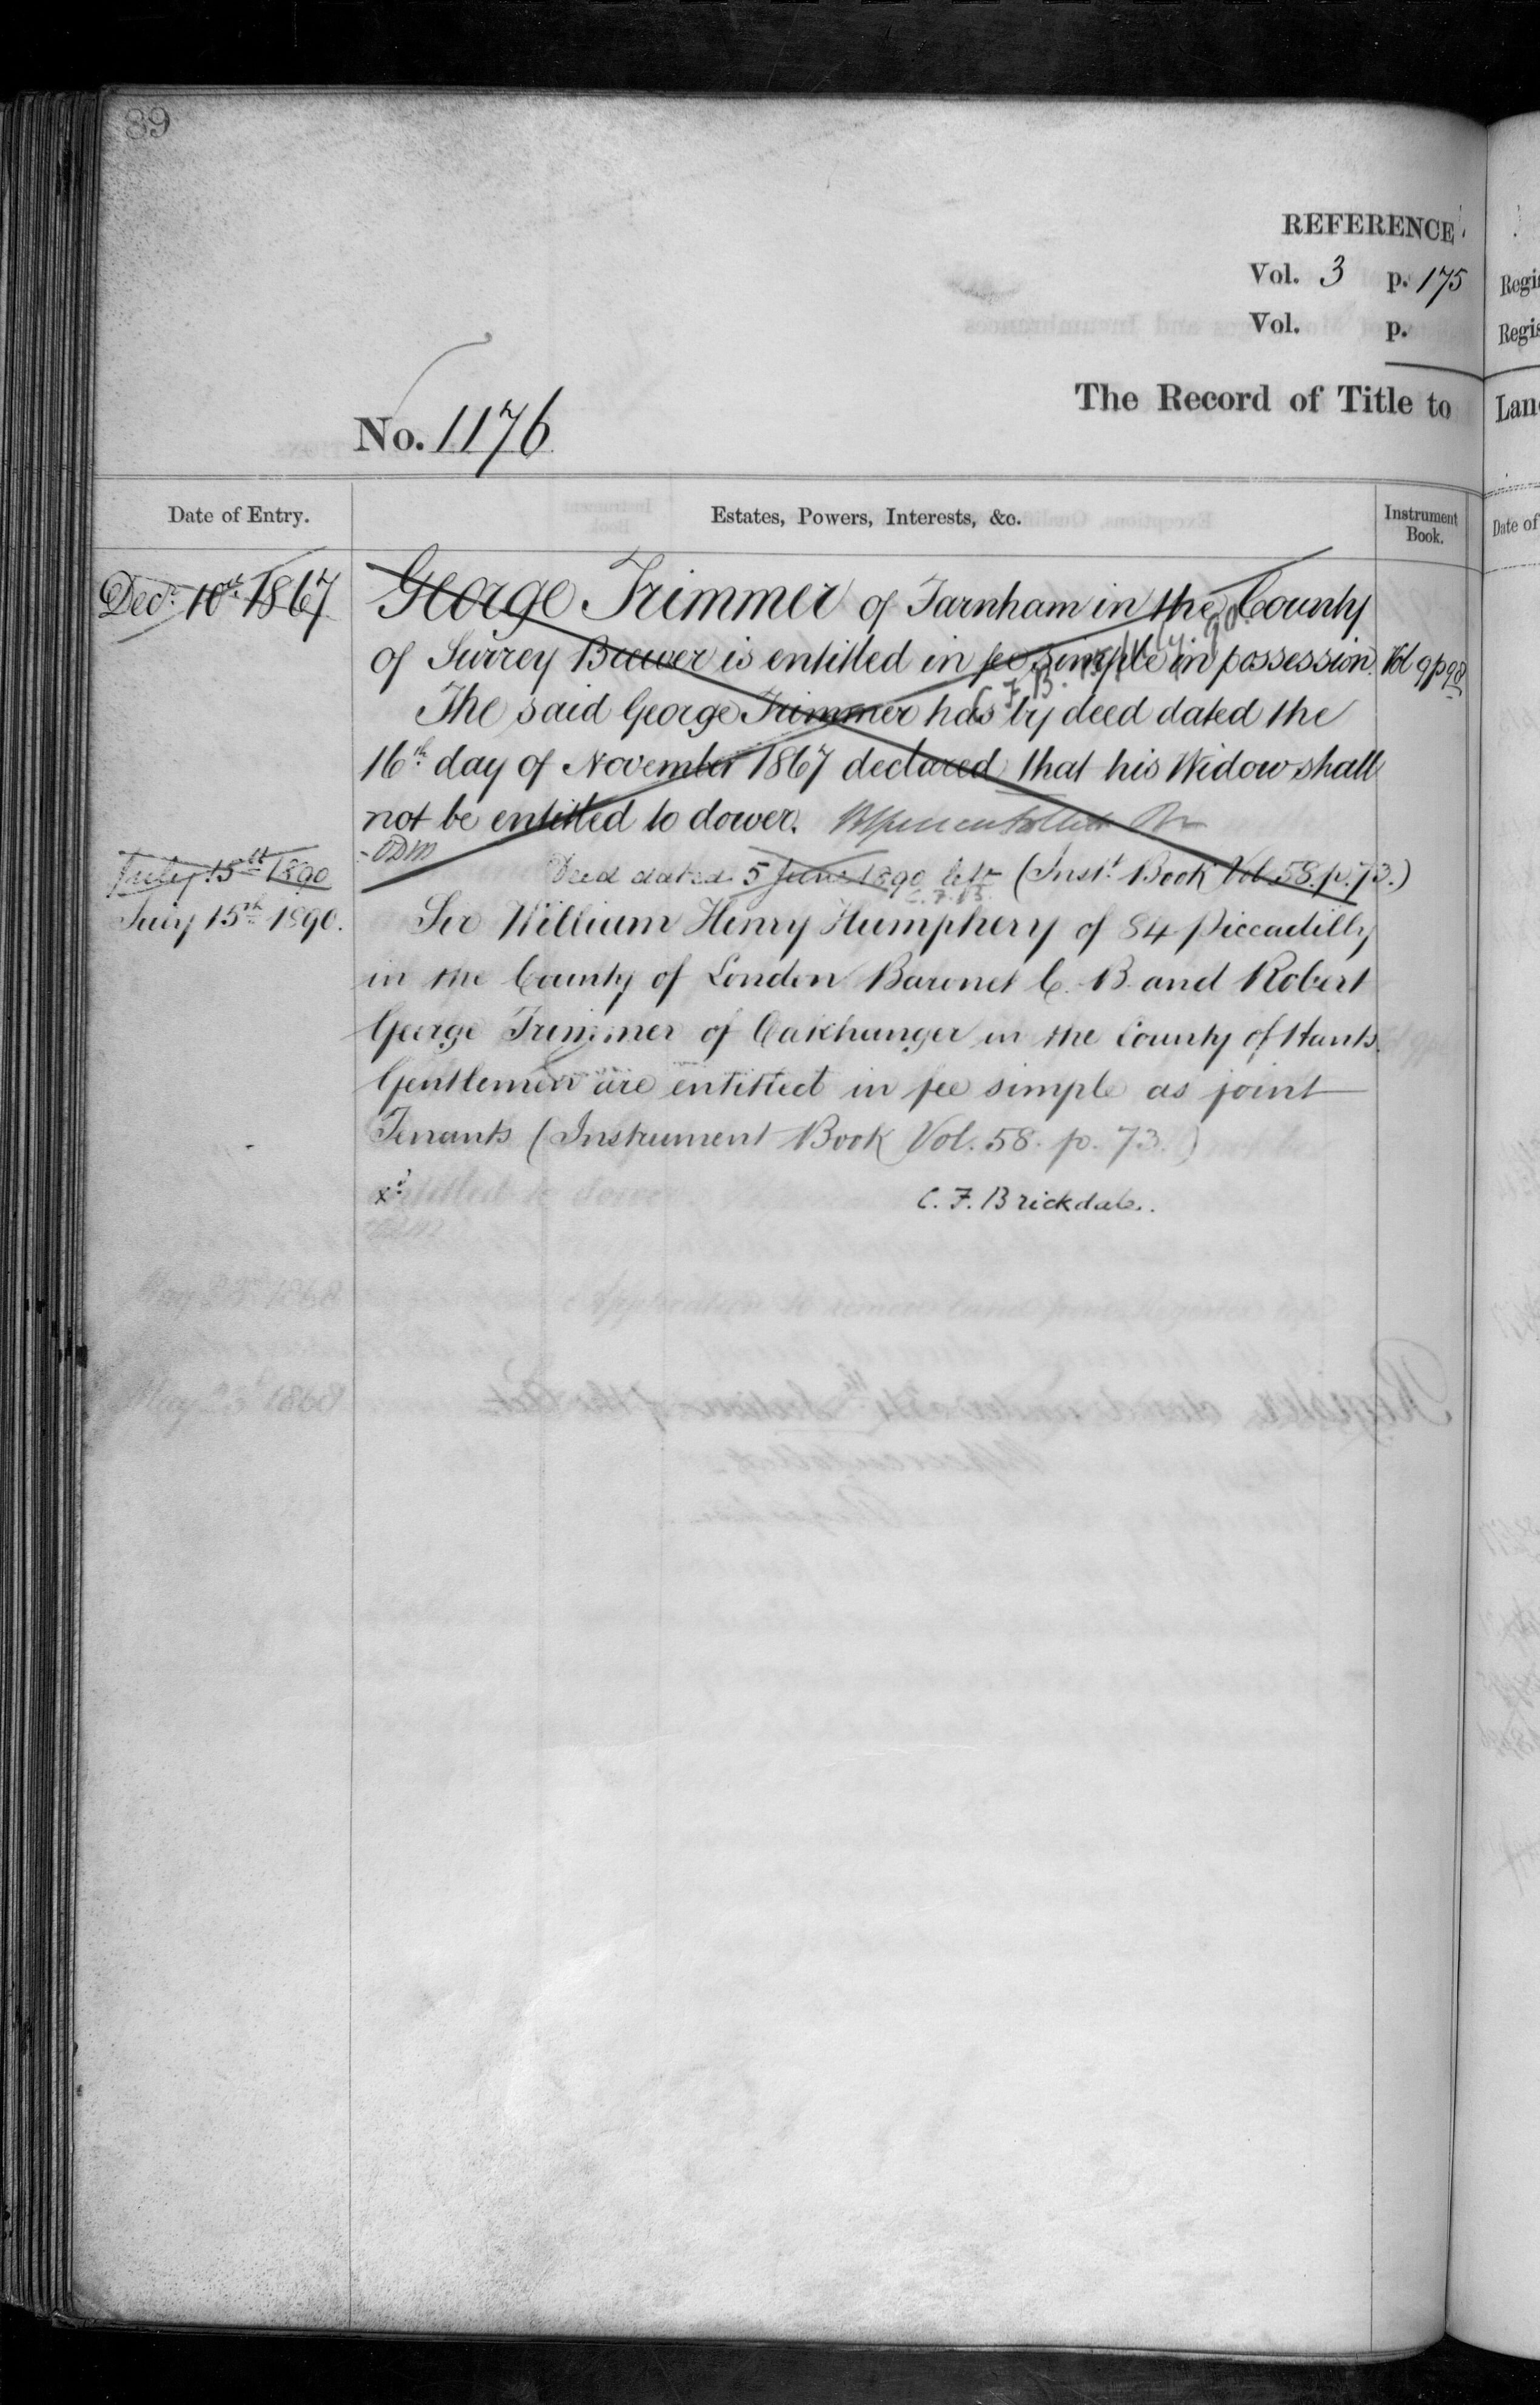 89
REFERENCE
Vol. 3 p. 175
Vol. p.
The Record of Title to
No. 1176
Date of Entry.
Estates, Powers, Interests, &c.
Instrument Book.
Decr. 10th 1867
George Trimmer of Farnham in the County
of Surrey Brewer is entitled in fee simple in possession. Vol 9 p 98
C. F. B.
The said George Trimmer has by deed dated the
16th day of November 1867 declared that his Widow shall
not be entitled to dower.
July 15th 1890
Deed dated 5 June 1890 (Inst. Book Vol. 58. p. 73.)
C. F. B.
July 15th 1890.
Sir William Henry Humphery of 84 Piccadilly
in the County of London Baronet C. B. and Robert
George Trimmer of Oakhanger in the County of Hants.
Gentlemen are entitled in fee simple as joint
Tenants (Instrument Book Vol. 58. p. 73.)
C. F. Brickdale.
Regi
Regis
Lan
Date of